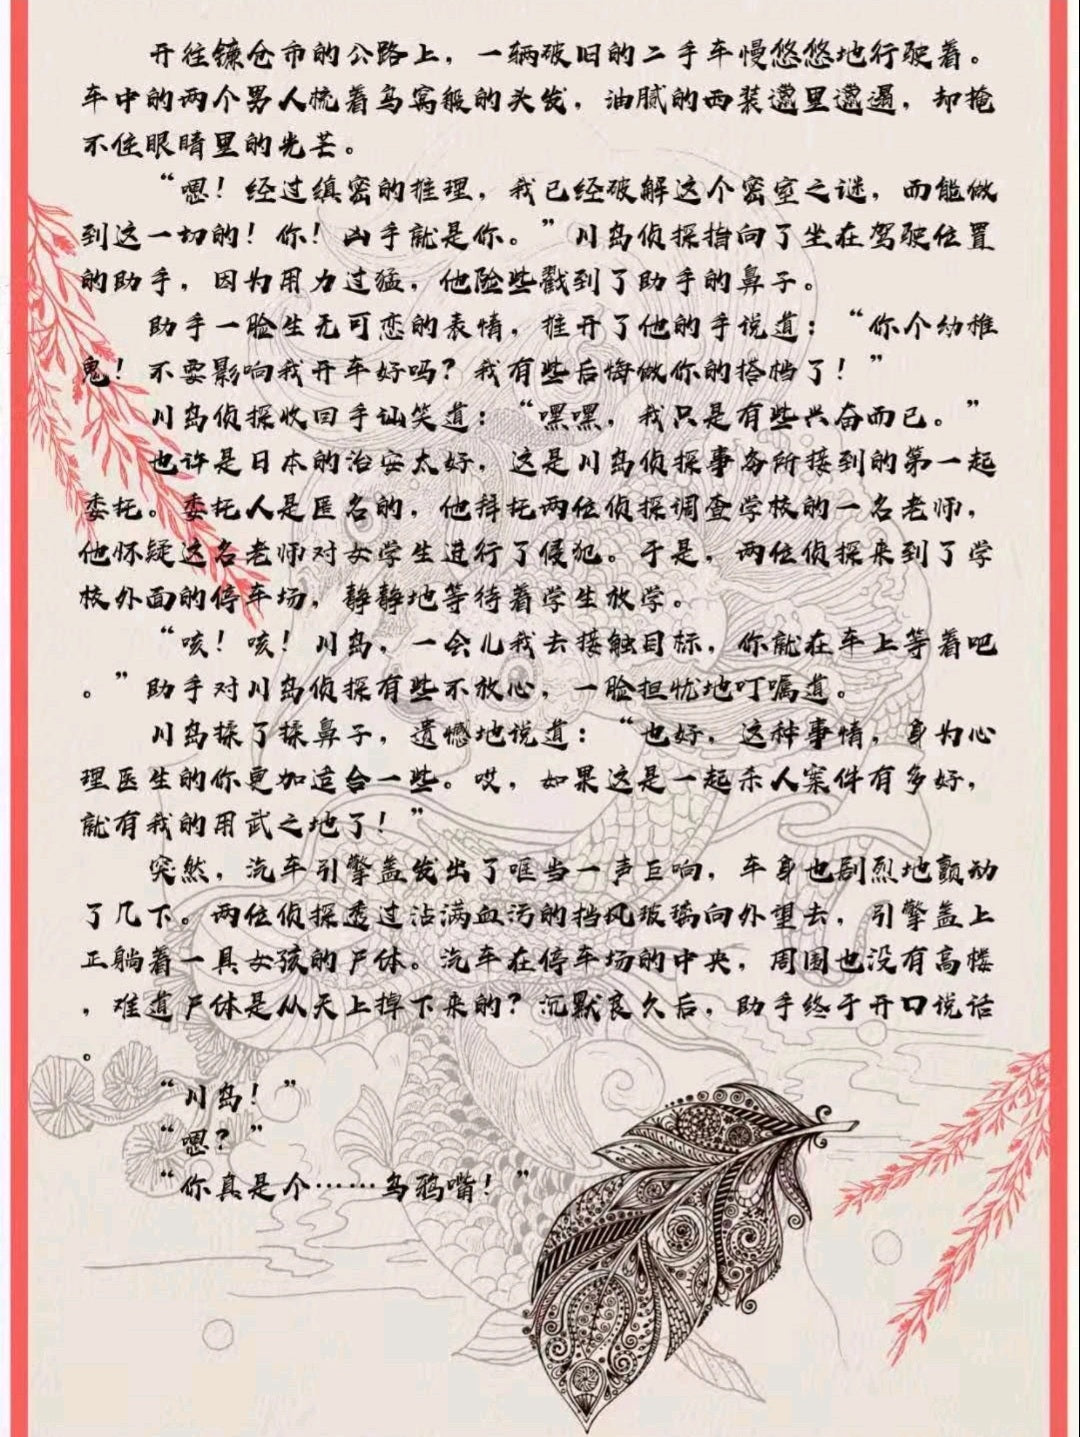 开往镰仓市的公路上，一辆破旧的二手车慢悠悠地行驶着。
车中的两个男人梳着鸟窝般的头发，油腻的西装邋里邋遢，却掩
不住眼睛里的光芒。
“嗯！经过缜密的推理，我已经破解这个密室之谜，而能做
到这一切的！你！凶手就是你。”川岛侦探指向了坐在驾驶位置
的助手，因为用力过猛，他险些戳到了助手的鼻子。
助手一脸生无可恋的表情，推开了他的手说道：“你个幼稚
鬼！不要影响我开车好吗？我有些后悔做你的搭档了！”
川岛侦探收回手讪笑道：“嘿嘿，我只是有些兴奋而已。”
也许是日本的治安太好，这是川岛侦探事务所接到的第一起
委托。委托人是匿名的，他拜托两位侦探调查学校的一名老师，
他怀疑这名老师对女学生进行了侵犯。于是，两位侦探来到了学
校外面的停车场，静静地等待着学生放学。
“咳！咳！川岛，一会儿我去接触目标，你就在车上等着吧
。”助手对川岛侦探有些不放心，一脸担忧地叮嘱道。
川岛揉了揉鼻子，遗憾地说道：“也好，这种事情，身为心
理医生的你更加适合一些。哎，如果这是一起杀人案件有多好，
就有我的用武之地了！”
突然，汽车引擎盖发出了哐当一声巨响，车身也剧烈地颤动
了几下。两位侦探透过沾满血污的挡风玻璃向外望去，引擎盖上
正躺着一具女孩的尸体。汽车在停车场的中央，周围也没有高楼
，难道尸体是从天上掉下来的？沉默良久后，助手终于开口说话
。
“川岛！”
“嗯？”
“你真是个……乌鸦嘴！”